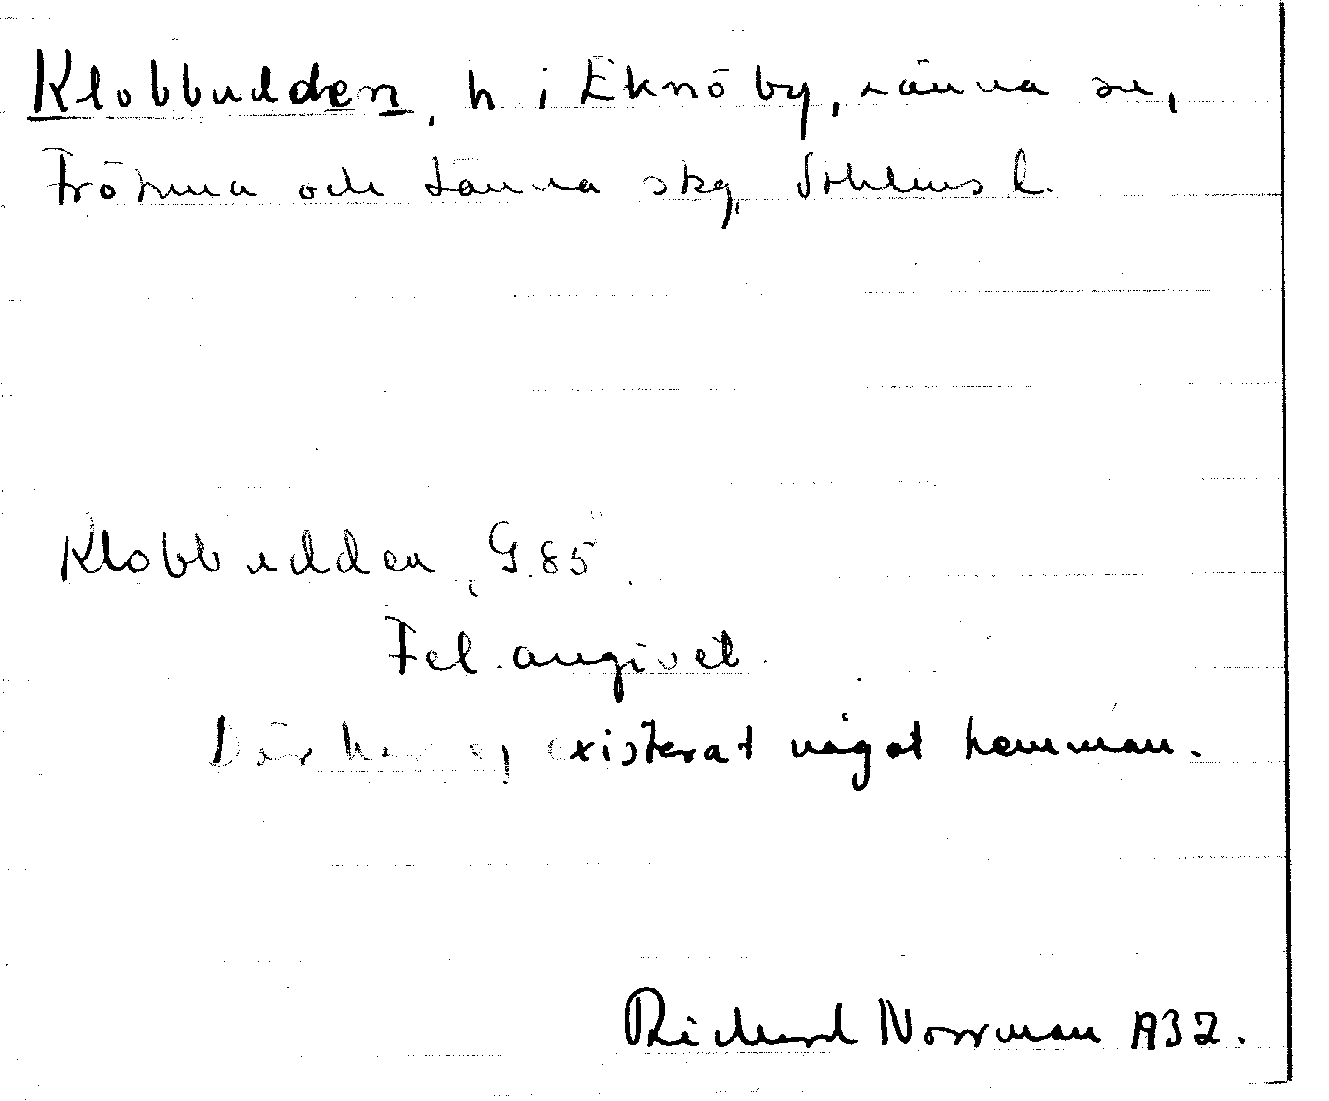 Klobbudden, h i Eknö by, Länna sn,
Frötuna och Länna skg, Sthlms l.
Klobbudden, G.85.
Fel angivet.
Där har ej existerat något hemman.
Richard Norrman A32.